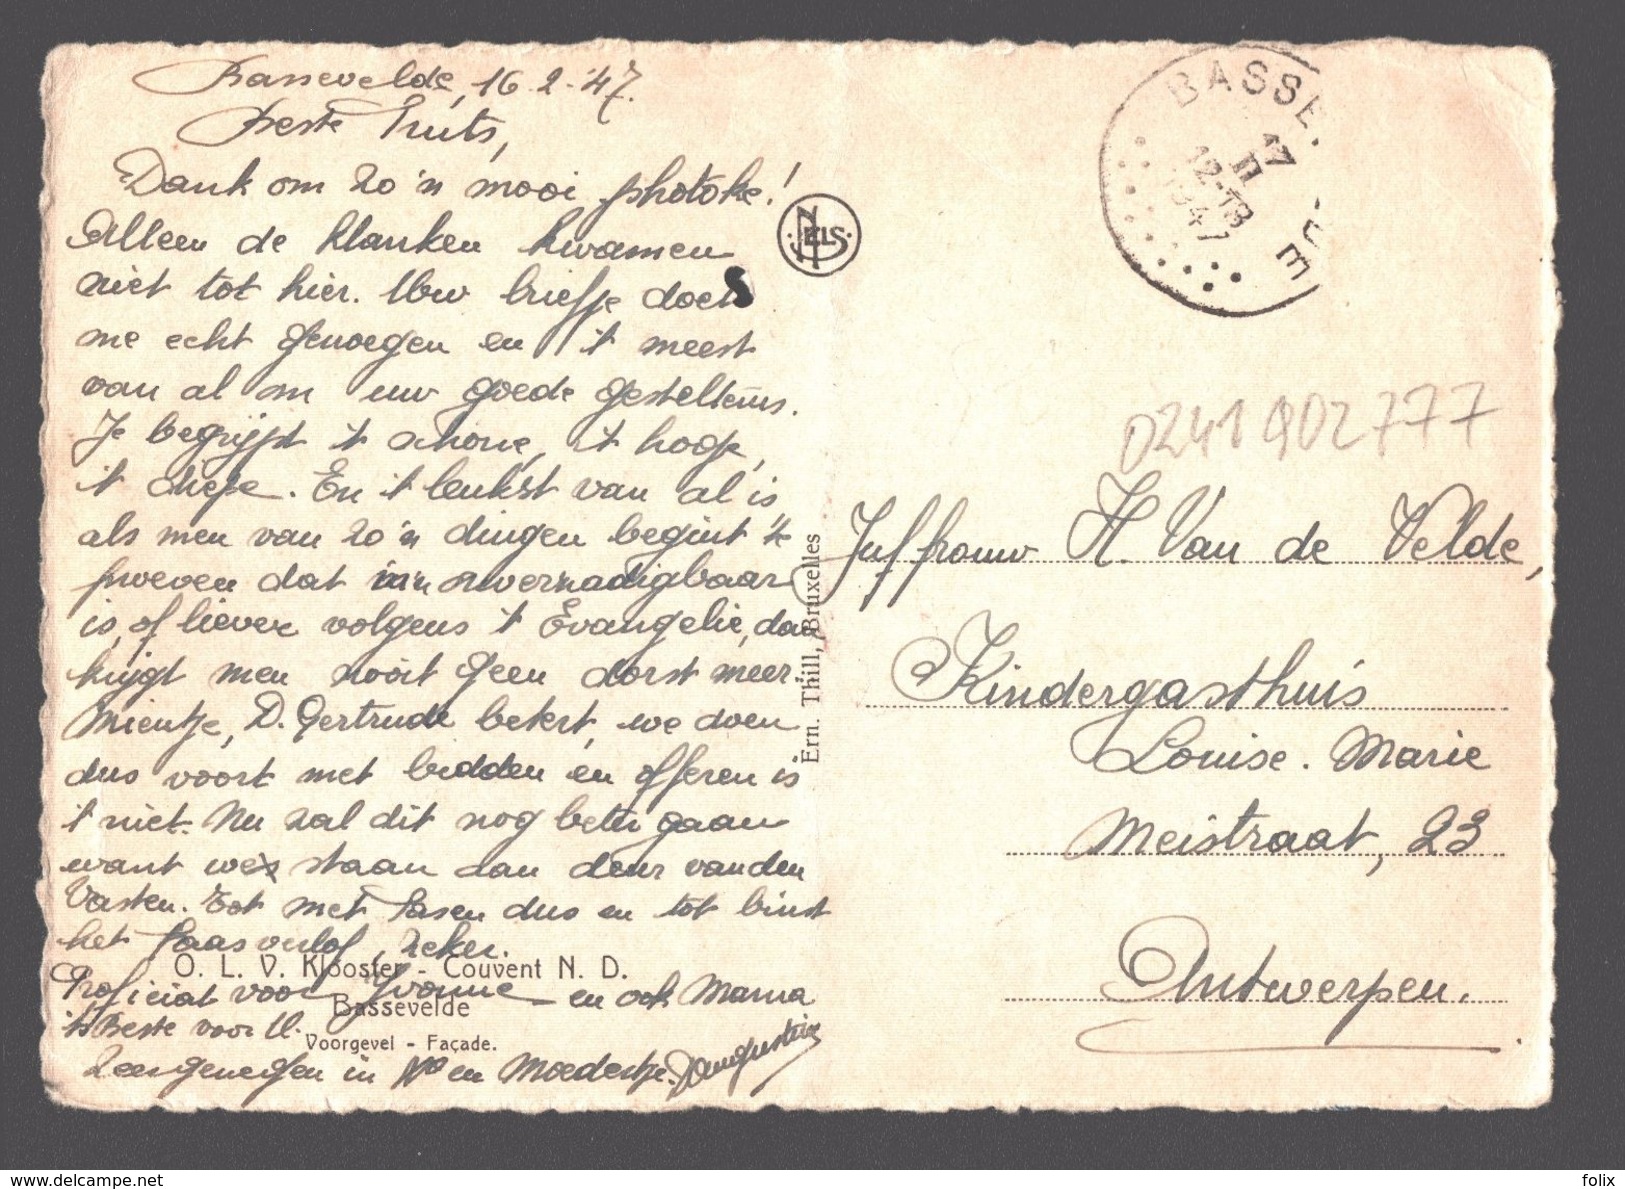 Bassevelde, 16-2-'47.
Beste Truts,
Dank om zo'n mooi photoke!
Alleen de klanken kwamen
niet tot hier. Uw briefje doets
me echt genoegen en 't meest
van al om uw goede gesteltenis.
Je begrijpt 't schone, 't hoge,
't diepe. En 't leukst van al is,
als men van zo'n dingen begint te
proeven dat men onverzadigbaar
is, of liever volgens 't Evangelie, dan
krijgt men nooit geen dorst meer.
Mientje, D. Gertrude betert, we doen
dus voort met bidden en offeren is
't niet. Nu zal dit nog beter gaan
want we staan aan deur van den
Vasten. Tot met Pasen dus en tot binst
het Paasverlof, zeker.
Proficiat voor Yvonne en ook Mama
't Beste voor U.
Zeer genegen in en Modestje. Augustine
O. L. V. Klooster - Couvent N. D.
Bassevelde
Voorgevel - Façade.
NELS
Ern. Thill, Bruxelles
BASSE
E
17
II
12-13
1947
0241902777
Juffrouw H. Van de Velde,
Kindergasthuis
Louise-Marie
Meistraat, 23
Antwerpen.
delcampe.net
folix